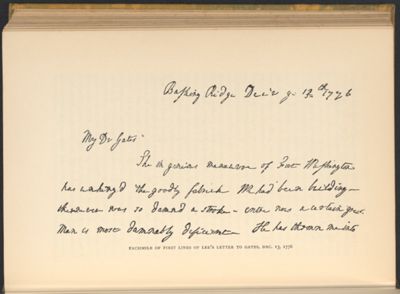 Basking Ridge Decr ye 13th 1776
My Dr Gates
The ingenious manœuvre of Fort Washington
has unhing'd the goodly fabrick We had been building—
there never was so damn'd a stroke— entre nous a certain great
Man is most damnably deficient— He has thrown me into
FACSIMILE OF FIRST LINES OF LEE'S LETTER TO GATES, DEC. 13, 1776